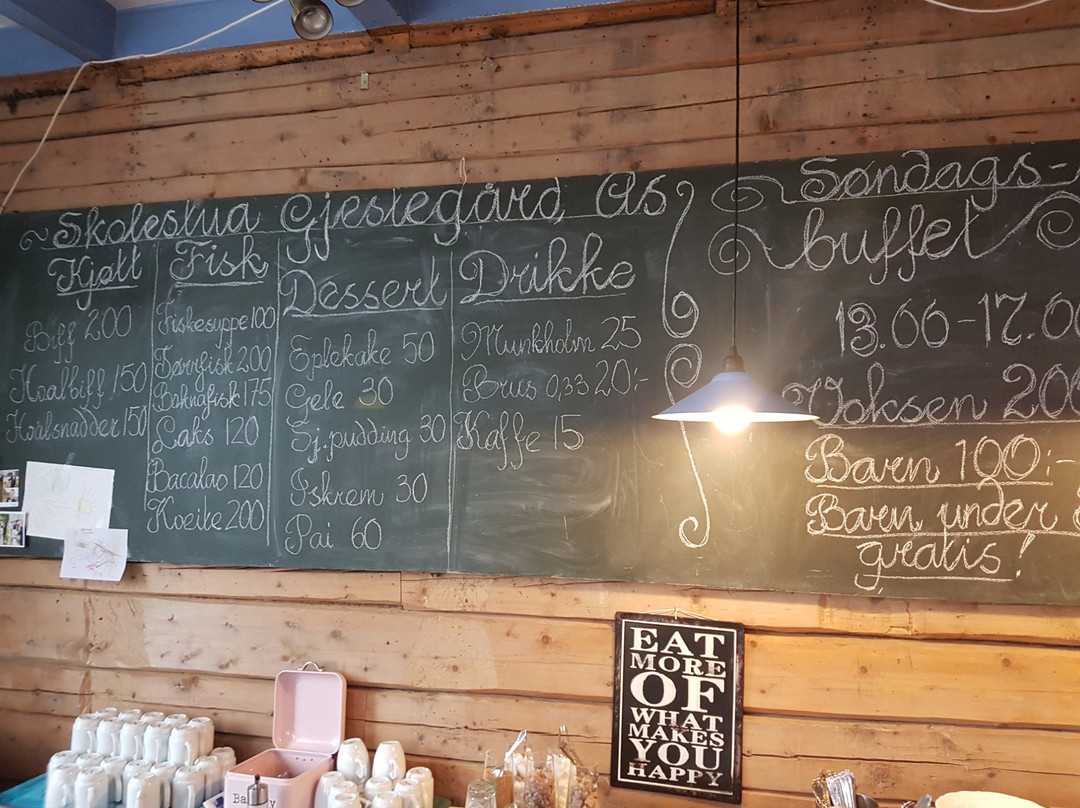 Skolestua Gjestegård, As
Kjøtt
Biff 200
Hvalbiff 150
Hvalsnadder 150
Fisk
Fiskesuppe 100
Tørrfisk 200
Boknafisk 175
Laks 120
Bacalao 120
Kveite 200
Dessert
Eplekake 50
Gele 30
Sj.pudding 30
Iskrem 30
Pai 60
Drikke
Munkholm 25
Brus 0,33 20:-
Kaffe 15
Søndags-
buffet
13.00-17.00
Voksen 200
Barn 100:-
Barn under
gratis!
EAT
MORE
OF
WHAT
MAKES
YOU
HAPPY